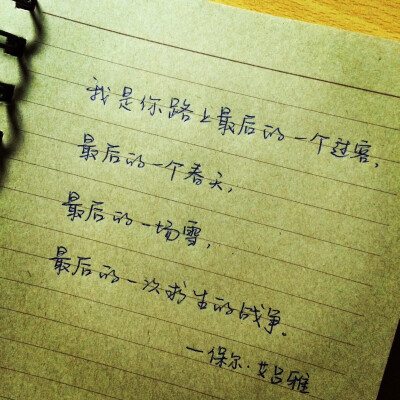 我是你路上最后的一个过客，
最后的一个春天，
最后的一场雪，
最后的一次求生的战争。
—保尔·艾吕雅